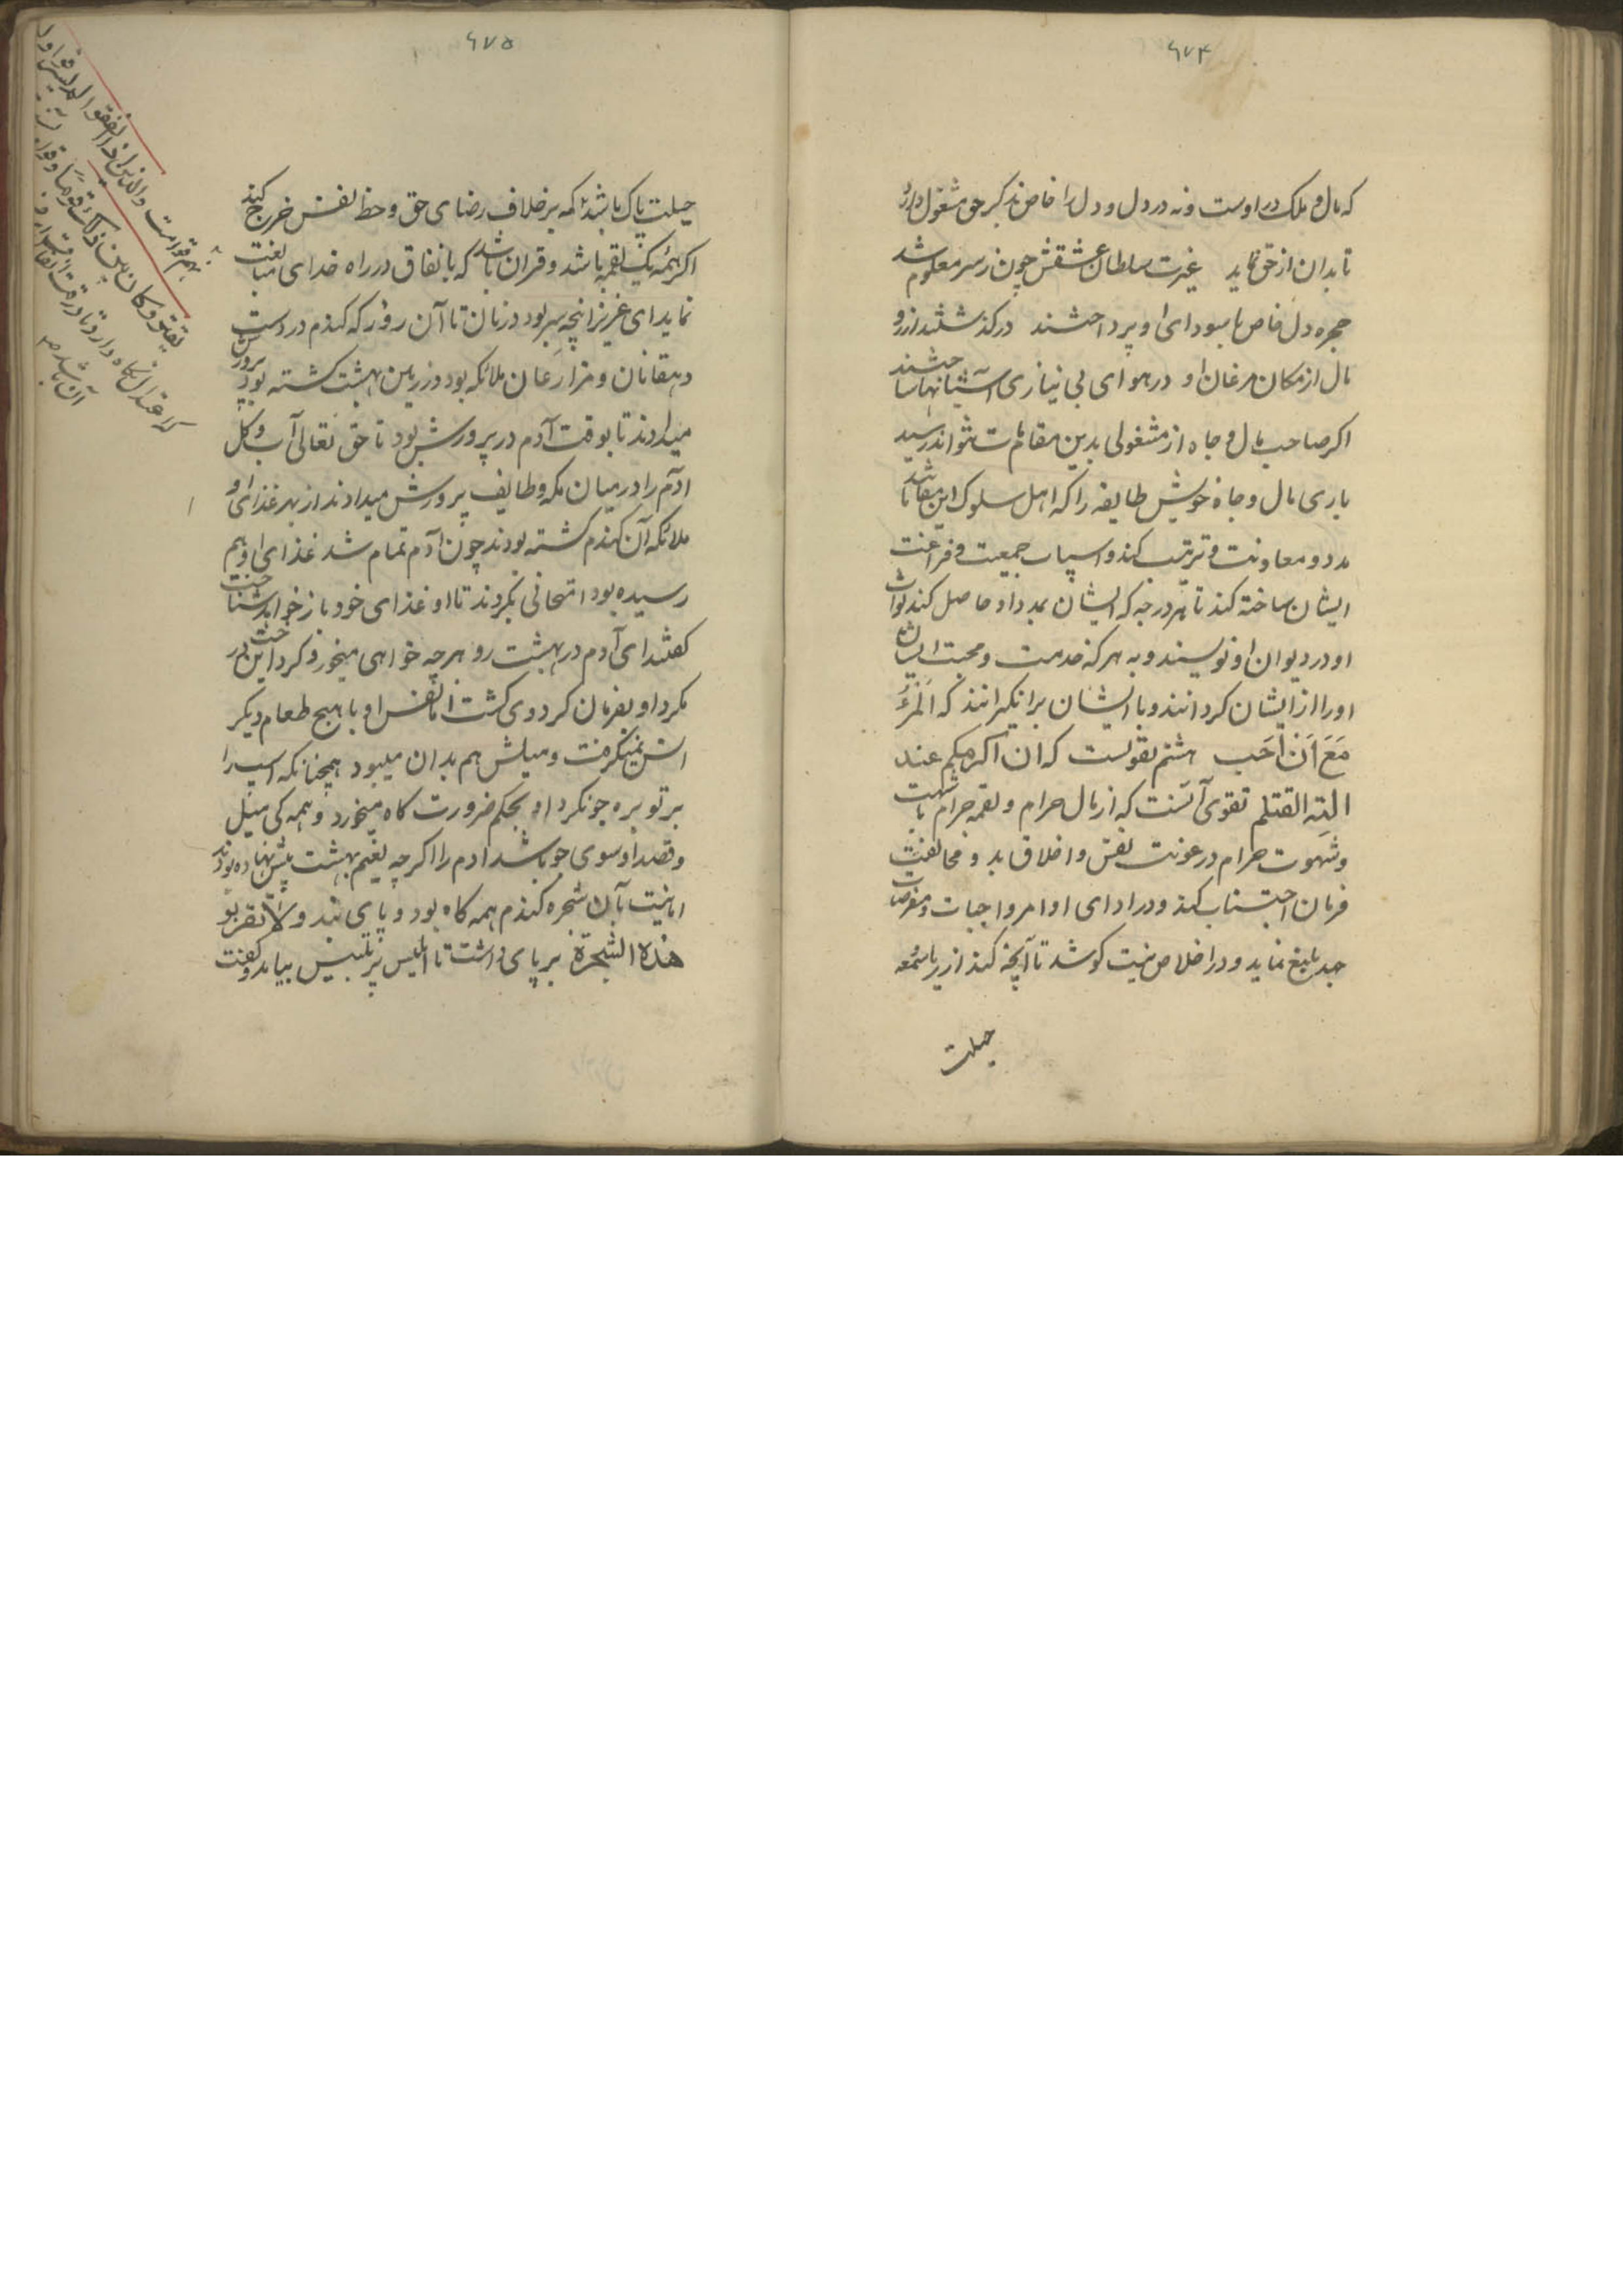 ۶۷۴
که مال و ملک در او ست و نه در دل و دل را خاص بذکر حق مشغول دارد
تا بدان از حق نماید غیرت سلطان عشقش چون ز سر معلوم شد
حجره دل خاص با سودای او پرداختند در گذشتند از رو
مال از مکان مرغان او در هوای بی نیازی آشیانها ساختند
اکر صاحب مال و جاه از مشغولی بدین مقامات نتواند رسید
باری مال و جاه خویش طایفه را که اهل سلوک این مقامات باشند
مدد و معاونت و تربیت کند و اسباب جمعیت و فراغت
ایشان ساخته کند تا هر درجه که ایشان بمدد او حاصل کنند ثواب
او در دیوان او نویسند و به برکه خدمت و محبت ایشان
او را از ایشان کردانند و با ایشان برانکیزانند که اَلْمَرْءُ
مَعَ مَنْ اَحَب هشتم تقویست که ان اکرمکم عند
اللّه اتقیکم تقوی آنست که از مال حرام و لقمه حرام شبهت
و شهوت حرام و رعونت نفس و اخلاق بد و مخالفت
فرمان اجتناب کند و در ادای اوامر واجبات و مفرضات
جد بلیغ نماید و در اخلاص نیت کوشد تا آنچه کند از ریا و سمعه
حیلت
۶۷۵
حیلت پاک باشد که بر خلاف رضای حق و حظ نفس خرج کند
اکر همه یک لقمه باشد و قران باشد که با نفاق در راه خدای مبالغت
نماید ای عزیز انچه سر بود در نان تا آن روز که کندم در دست
دهقانان و مزارعان ملائکه بود در زمین بهشت کشته بود پرورش
میدادند تا بوقت آدم در پرورش بود تا حق تعالی آب و کل
ادم را در میان مکه و طایف پرورش میدادند از بهر غذای او
ملائکه آن کندم کشته بودند چون آدم تمام شد غذای او هم
رسیده بود امتحانی بکردند تا او غذای خود باز خواهد شناخت
کفتند ای آدم در بهشت رو هر چه خواهی میخور و کرد این درخت
مکرد او بفرمان کردوی کشت اما نفس او با هیچ طعام دیکر
انس نمیکرفت و میلش هم بدان میبود همچنانکه اسب را
بر توبره جو نکرد او بحکم ضرورت کاه میخورد و همه کی میل
و قصد او سوی جو باشد ادم را اکرچه نعیم بهشت پیش نهاده بودند
اما نیت بآن شجره کندم همه کاه بود و پای بند و لا تقربو
هذه الشجرة بر پای داشت تا ابلیس پر تلبیس بیامد و کفت
والذین اذا انفقوا لم یسرفوا و لم
یقتروا و کان بین ذلک قواما